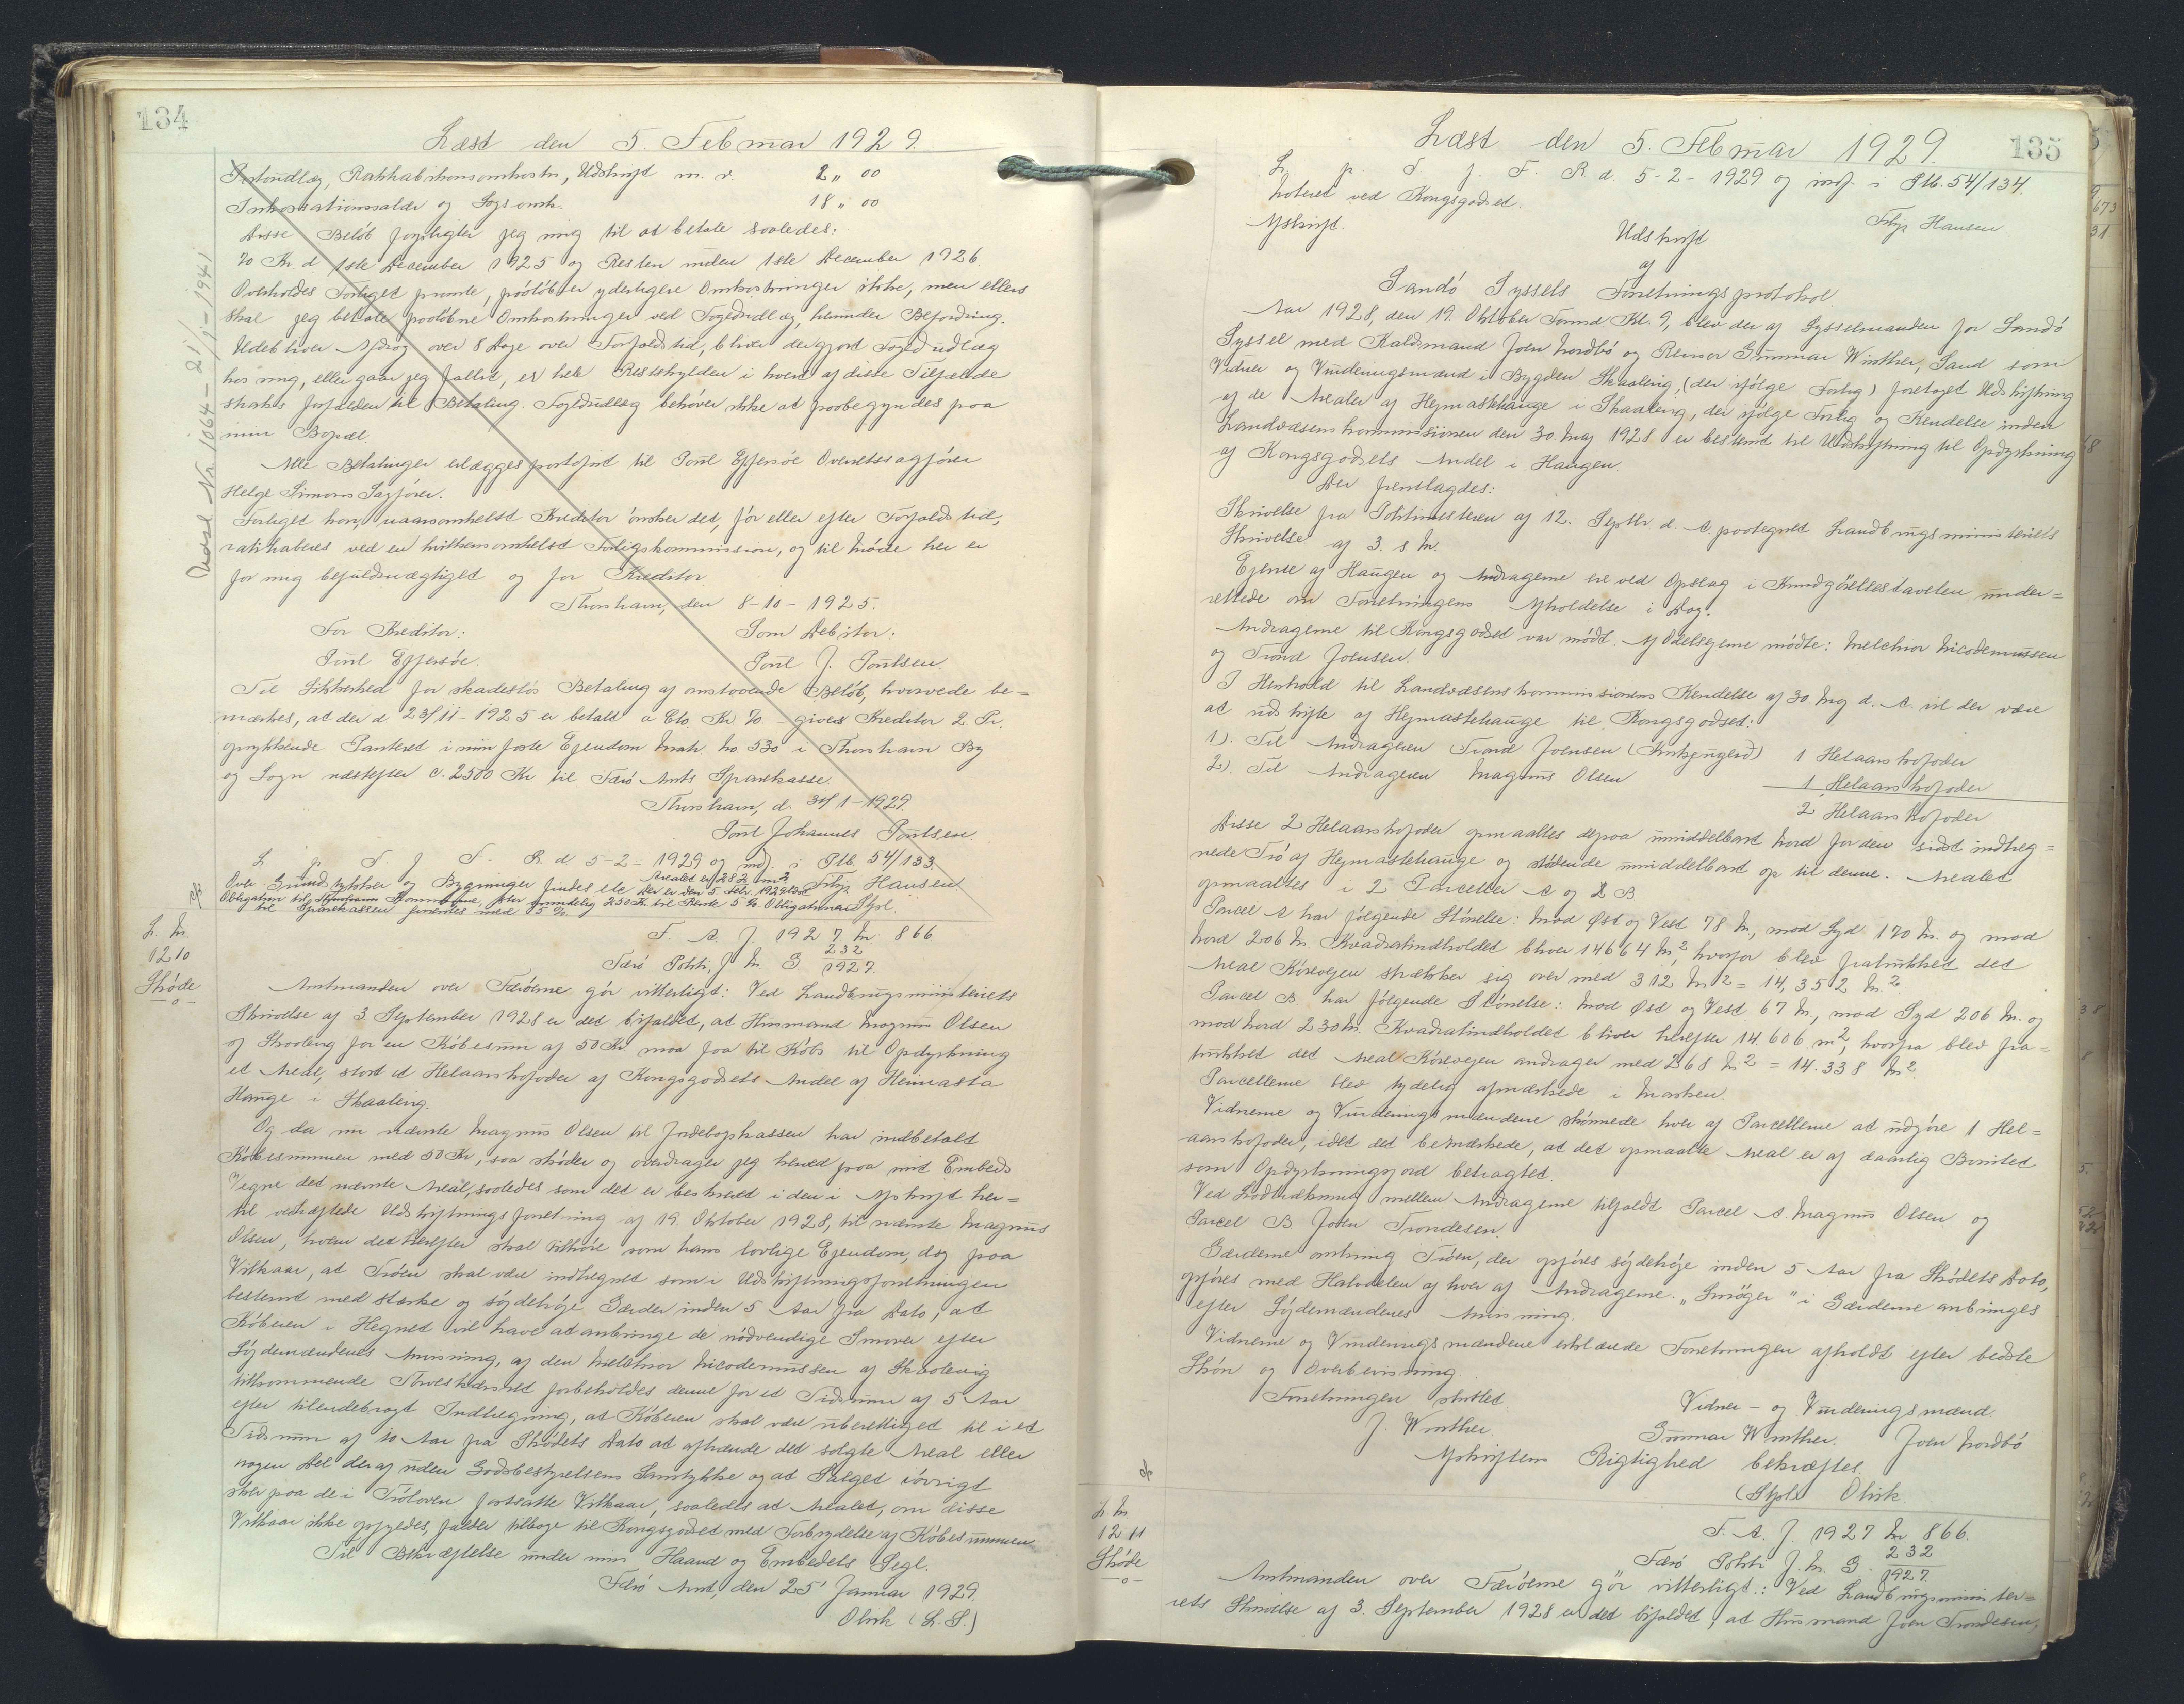 134
Læst den 5. Februar 1929.
Portoudlæg, Ratihabitionsomkostn, Udskrift m. v. 2 " 00
Inkassationssalær og Sagsomk. 18 " 00
Disse Beløb forpligter jeg mig til at betale saaledes:
70 Kr d 1ste December 1925 og Resten inden 1ste December 1926.
Overholdes Forliget promte, paaløber yderligere Omkostninger ikke, men ellers
skal jeg betale paaløbne Omkostninger ved Fogedudlæg, herunder Befordring.
Udebliver Afdrag over 8 Dage over Forfaldstid, bliver der gjort Fogedudlæg
hos mig, eller gaar jeg fallit, er hele Restskylden i hvert af disse Tilfælde
straks forfalden til Betaling. Fogedudlæg behøver ikke at paabegyndes paa
min Bopæl.
Alle Betalinger erlægges portofrit til Poul Effersøe Overretssagfører
Helge Simoni Sagfører.
Forliget kan, naarsomhelst Kreditor ønsker det, før eller efter Forfaldstid,
ratihaberes ved en hvilkensomhelst Forligskommission, og til Møde her er
for mig befuldmægtiget og for Kreditor
Thorshavn, den 8-10-1925.
For Kreditor: Som Debitor:
Poul Effersøe. Poul J. Poulsen.
Til Sikkerhed for skadesløs Betaling af omstaaende Beløb, hvorved be=
mærkes, at der d 23/11-1925 er betalt a Cto. Kr 70 - gives Kreditor 2. Pr.
oprykkende Panteret i min faste Ejendom Matr. No. 530 i Thorshavn By
og Sogn næstefter c. 2500 Kr til Færø Amts Sparekasse.
Thorshavn, d. 31/1-1929.
Poul Johannes Poulsen
L. p. S. f. F. R. d 5-2-1929 og indf. i Ptb. 54/133.
Arealet er 282 m2
Over Grundstykker og Bygninger findes ele Der er den 5 Febr. 1929 Filip Hansen
Obligation til Thorshavn Kommune, stor oprindelig 250 Kr. til Rente 5 % Obligationen Sfol.
til Sparekassen forrentes med 5 %
Udsl. Nr. 1064 - 21/1-1941
L. No.
1210
Skøde
-o-
F. A. J. 1927. No. 866
Færø Politi, J. No. G 232/1927.
Amtmanden over Færøerne gør vitterligt: Ved Landbrugsministeriets
Skrivelse af 3 September 1928 er det bifaldet, at Husmand Magnus Olsen
af Skaaleng for en Købesum af 50 Kr maa faa til Købs til Opdyrkning
et Areal, stort et Helaarskofoder af Kongsgodsets Andel af Heimasta
Hauge i Skaaleng.
Og da nu nævnte Magnus Olsen til Jordebogskassen har indbetalt
Købesummen med 50 Kr, saa skøder og overdrager jeg herved paa mit Embeds
Vegne det nævnte Areal, saaledes som det er beskrevet i den i Afskrift her=
til vedhæftede Udskiftningsforretning af 19. Oktober 1928, til nævnte Magnus
Olsen, hvem det herefter skal tilhøre som hans lovlige Ejendom, dog paa
Vilkaar, at Trøen skal være indhegnet som i Udskiftningsforretningen
bestemt med stærke og søjdehøje Gærder inden 5 Aar fra Dato, at
Køberen i Hegnet vil have at anbringe de nødvendige Smover efter
Søjdemændenes Anvisning, at den Melchior Nicodemussen af Skaalevig
tilkommende Tørveskæreret forbeholdes denne for et Tidsrum af 5 Aar
efter tilendebragt Indhegning, at Køberen skal være uberettiget til i et
Tidsrum af 10 Aar fra Skødets Dato at afhænde det solgte Areal eller
nogen Del deraf uden Godsbestyrelsens Samtykke og at Salget iøvrigt
sker paa de i Trøloven fastsatte Vilkaar, saaledes at Arealet, om disse
Vilkaar ikke opfyldes, falder tilbage til Kongsgodset med Forbrydelse af Købesummen
Til Bekræftelse under min Haand og Embedets Segl.
Færø Amt, den 25' Januar 1929.
Olrik (L. S.)
135
Læst den 5. Februar 1929.
L. p. S. f. F. R. d. 5-2-1929 og indf. i Ptb. 54/134.
Noteret ved Kongsgodset. Filip Hansen
Afskrift.
Udskrift
af
Sandø Syssels Forretningsprotokol.
Aar 1928, den 19. Oktober Formd Kl. 9, blev der af Sysselmanden for Sandø
Syssel med Kaldsmand Joen Nordbø og Revisor Gunnar Winther, Sand som
Vidner og Vurderingsmænd i Bygden Skaaleng, (der ifølge Forlig) foretaget Udskiftning
af de Arealer af Hejmastehauge i Skaaleng, der ifølge Forlig og Kendelse inden
Landvæsenskommissionen den 30. Maj 1928 er bestemt til Udskiftning til Opdyrkning
af Kongsgodsets Andel i Haugen.
Der fremlagdes:
Skrivelse fra Politmesteren af 12. Septbr d. A. paategnet Landbrugsministeriets
Skrivelse af 3. s. M.
Ejerne af Haugen og Andragerne ere ved Opslag i Kundgørelsestavelen under=
rettede om Forretningens Afholdelse i Dag.
Andragerne til Kongsgodset var mødt. Af Odelsejerne mødte: Melchior Nicodemussen
og Trond Joensen.
I Henhold til Landvæsenskommissionens Kendelse af 30. Maj d. A. vil der være
at udskifte af Hejmastehauge til Kongsgodset:
1). Til Andrageren Trond Joensen 1 Helaarskofoder
2). Til Andrageren Magnus Olsen 1 Helaarskofoder
2 Helaarskofoder
Disse 2 Helaarskofoder opmaaltes depaa umiddelbart Nord for den sidst indheg=
nede Trø af Hejmastehauge og stødende umiddelbart op til denne. Arealet
opmaaltes i 2 Parceller A og 2 B
Parcel A har følgende Størrelse: Mod Øst og Vest 78 M., mod Syd 170 M. og mod
Nord 206 M. Kvadratindholdet bliver 14664 M2, hvorfor blev fratrukket det
Areal Kørevejen strækker sig over med 312 M2 = 14,352 M.2
Parcel B. har følgende Størrelse: Mod Øst og Vest 67 M., mod Syd 206 M. og
mod Nord 230 M. Kvadratindholdet bliver herefter 14.606 m2, hvorfra blev fra=
trukket det Areal Kørevejen andrager med 268 M2 = 14.338 M2.
Parcellerne blev tydelig afmærkede i Marken.
Vidnerne og Vurderingsmændene skønnede hver af Parcellerne at udgøre 1 Hel=
aarskofoder, idet det bemærkede, at det opmaalte Areal er af daarlig Bonitet
som Opdyrkningsjord betragtet.
Ved Lodtrækning mellem Andragerne tilfaldt Parcel A. Magnus Olsen og
Parcel B Joen Trondesen.
Gærderne omkring Trøen, der opføres søjdehøje inden 5 Aar fra Skødets Dato,
opføres med Halvdelen af hver af Andragerne. "Smøger" i Gærderne anbringes
efter Søjdemændenes Anvisning.
Vidnerne og Vurderingsmændene erklærede Forretningen afholdt efter bedste
Skøn og Overbevisning.
Forretningen sluttet. Vidner- og Vurderingsmænd.
J. Winther. Gunnar Winther. Joen Nordbø
Afskriftens Rigtighed bekræftes.
(Sfol) Olrik
L. No.
1211
Skøde
-o-
F. A. J. 1927 No 866.
Færø Politi J. No. G. 232/1927.
Amtmanden over Færøerne gør vitterligt: Ved Landbrugsminister=
iets Skrivelse af 3. September 1928 er det bifaldet, at Husmand Joen Trondesen,